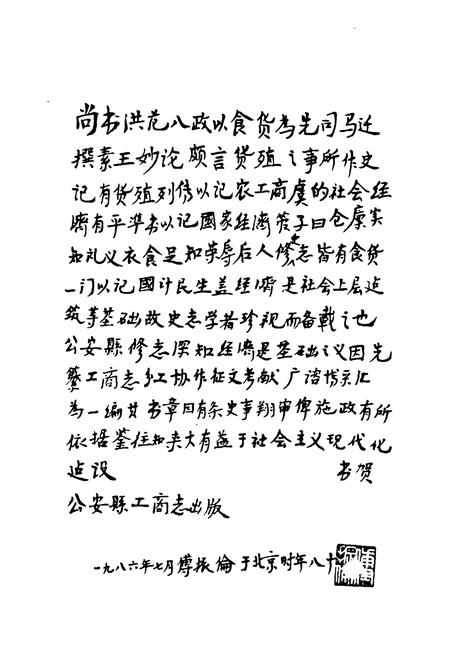 尚书洪范八政以食货为先司马迁
撰素王妙论颇言货殖之事所作史
记有货殖列传以记农工商虞的社会经
济有平準书以记國家经济管子曰仓廪实
知礼义衣食足知荣辱后人修志皆有食货
一门以记國计民生盖经濟是社会上层建
筑等基础故史志学者珍视而备载之也
公安縣修志深知经濟是基础之义因先
纂工商志分工协作征文考献广谘博采汇
为一编其书章目有条史事翔审俾施政有所
依据鉴往知来大有益于社会主义现代化
建设 书贺
公安縣工商志出版
一九八六年七月傅振倫于北京时年八十